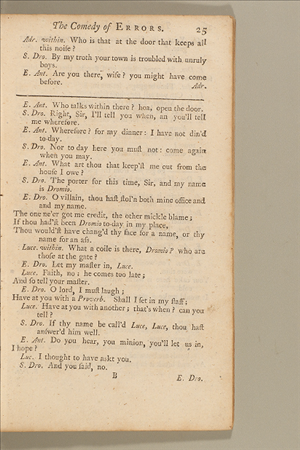 The Comedy of ERRORS. 25
Adr. within. Who is that at the door that keeps all
this noise?
S. Dro. By my troth your town is troubled with unruly
boys.
E. Ant. Are you there, wife? you might have come
before.
Adr.
E. Ant. Who talks within there? hoa, open the door.
S. Dro. Right, Sir, I'll tell you when, an you'll tell
me wherefore.
E. Ant. Wherefore? for my dinner: I have not din'd
to-day.
S. Dro. Nor to day here you must not: come again
when you may.
E. Ant. What art thou that keep'st me out from the
house I owe?
S. Dro. The porter for this time, Sir, and my name
is Dromio.
E. Dro. O villain, thou hast stol'n both mine office and
and my name.
The one ne'er got me credit, the other mickle blame;
If thou had'st been Dromio to-day in my place,
Thou would'st have chang'd thy face for a name, or thy
name for an ass.
Luce. within. What a coile is there, Dromio? who are
those at the gate?
E. Dro. Let my master in, Luce.
Luce. Faith, no; he comes too late;
And so tell your master.
E. Dro. O lord, I must laugh;
Have at you with a Proverb. Shall I set in my staff;
Luce. Have at you with another; that's when? can you
tell?
S. Dro. If thy name be call'd Luce, Luce, thou hast
answer'd him well.
E. Ant. Do you hear, you minion, you'll let us in,
I hope?
Luc. I thought to have askt you.
S. Dro. And you said, no.
B
E. Dro.